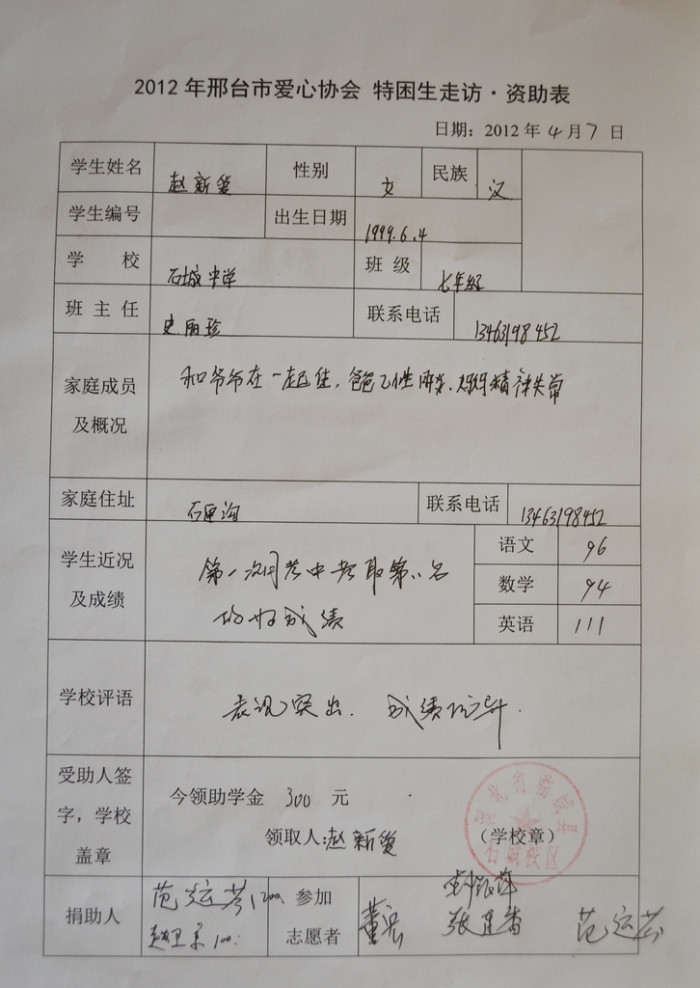 2012年邢台市爱心协会 特困生走访·资助表
日期：2012年4月7日
学生姓名 赵新爱 性别 女 民族 汉
学生编号 出生日期 1999.6.4
学 校 石城中学 班 级 七年级
班 主 任 史丽珍 联系电话 13463198452
家庭成员
及概况
和爷爷在一起住,爸爸 精神失常
家庭住址 石匣沟 联系电话 13463198452
学生近况
及成绩
第一次月考中考取第八名
的好成绩
语文 96
数学 94
英语 111
学校评语 表现突出. 成绩
受助人签
字，学校
盖章
今领助学金 300 元
领取人:赵新爱 （学校章）
河北省临城县
石城校区
捐助人 范运芬 200. 100.
参加
志愿者
董 范运芬